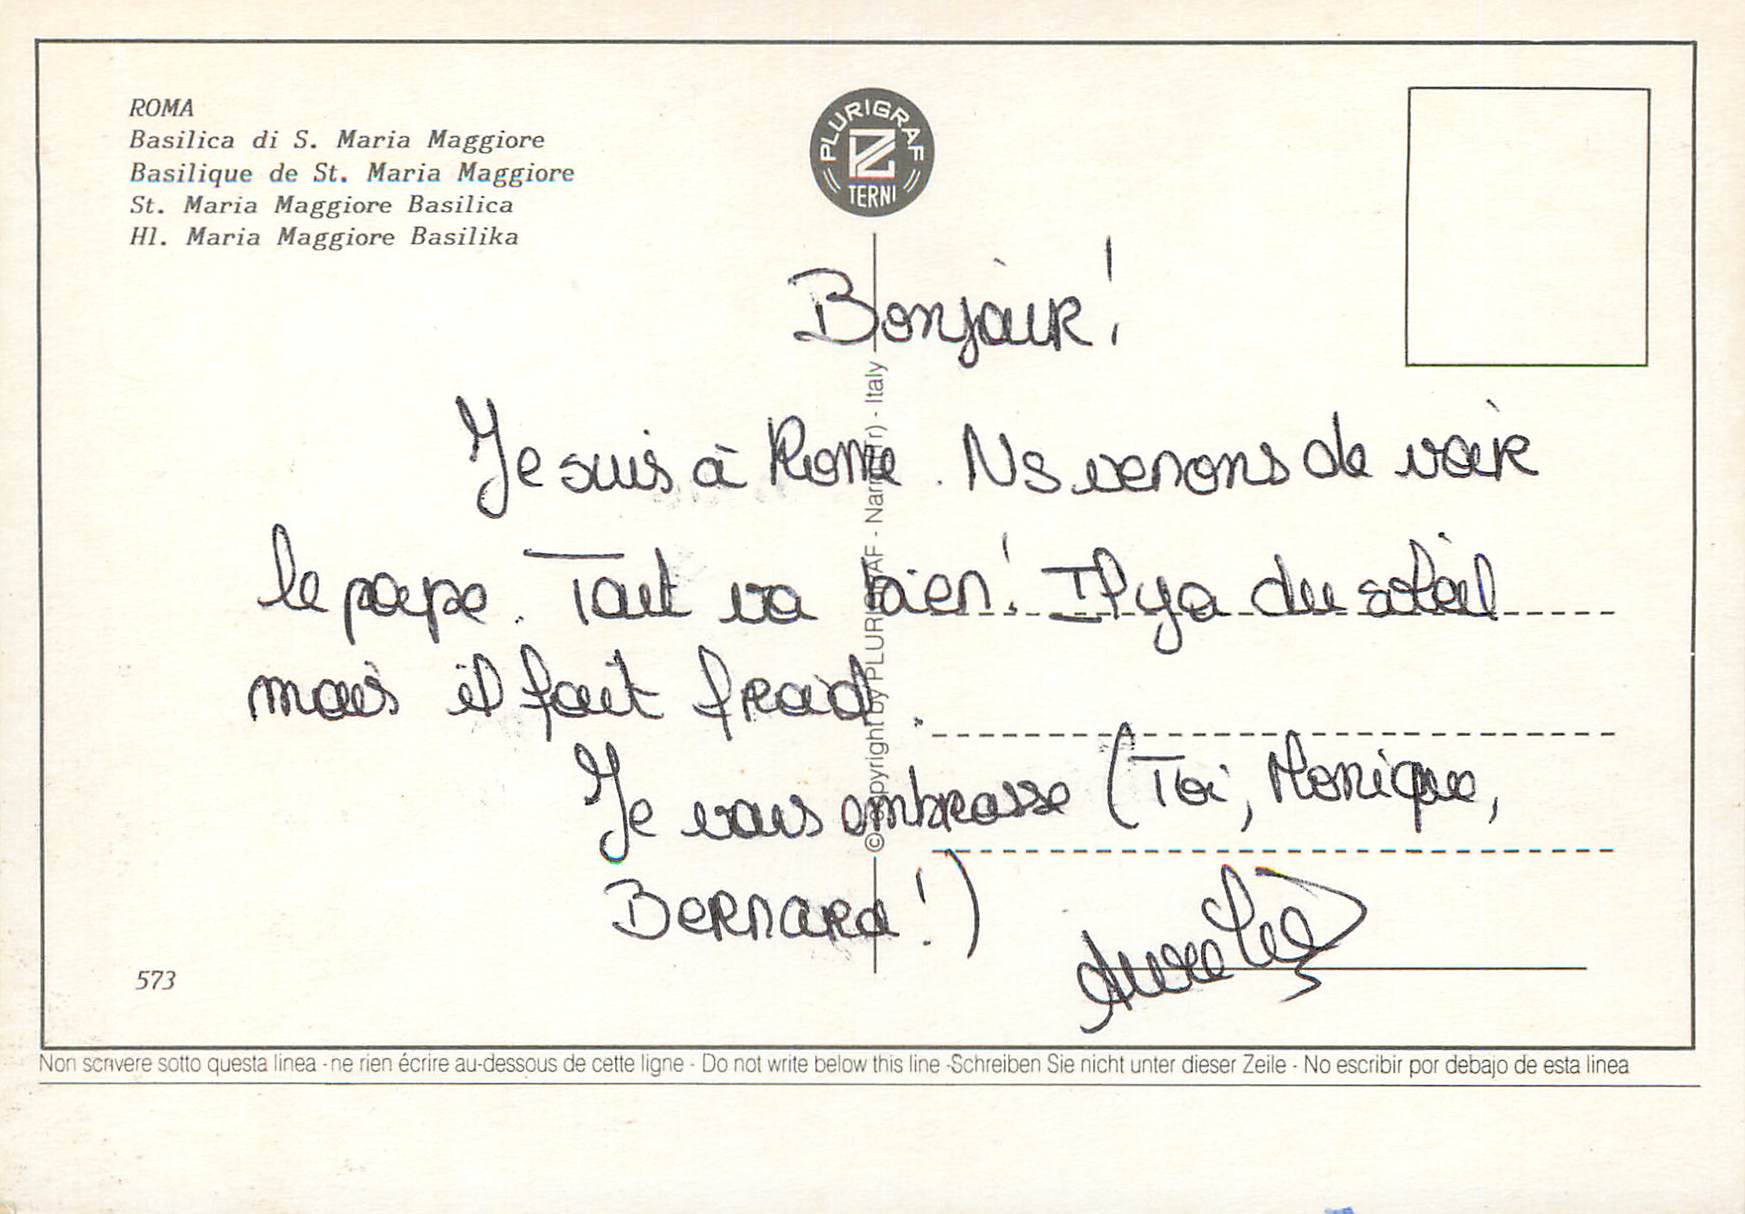 ROMA
Basilica di S. Maria Maggiore
Basilique de St. Maria Maggiore
St. Maria Maggiore Basilica
Hl. Maria Maggiore Basilika
PLURIGRAF
TERNI
Bonjour!
Je suis à Rome. Ns venons de voir
le pape. Tout va bien! Il y a du soleil
mais il fait froid.
Je vous embrasse (Toi, Monique,
Bernard!)
Aurélie
© Copyright by PLURIGRAF - Narni (Tr) - Italy
573
Non scrivere sotto questa linea - ne rien écrire au-dessous de cette ligne - Do not write below this line -Schreiben Sie nicht unter dieser Zeile - No escribir por debajo de esta linea